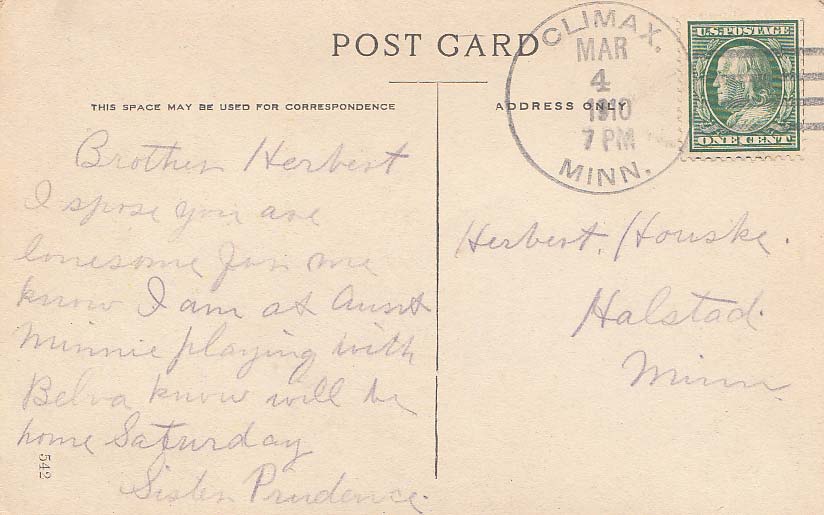 POST CARD
THIS SPACE MAY BE USED FOR CORRESPONDENCE
ADDRESS ONLY
CLIMAX.
MAR
4
1910
7 PM
MINN.
U.S. POSTAGE
ONE CENT
Brother Herbert
I spose you are
lonesome for me
know I am at Aunt
Minnie playing with
Belva know will be
home Saturday
Sister Prudence.
542
Herbert. Houske.
Halstad.
Minn.